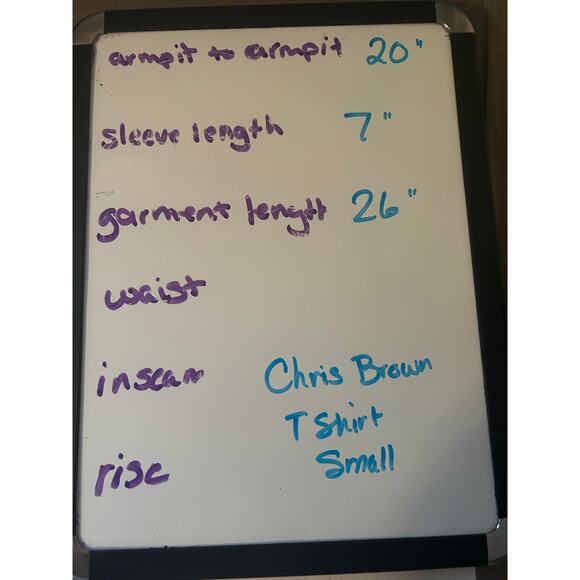 armpit to armpit 20"
sleeve length 7"
garment length 26"
waist
inseam Chris Brown
T Shirt
Small
rise